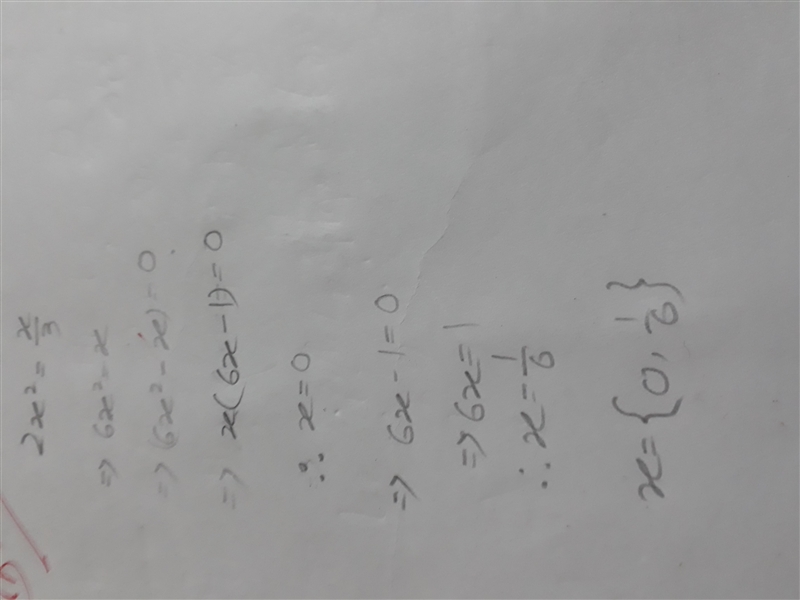 2x² = x/3
⇒ 6x² = x
⇒ 6x² - x) = 0
⇒ x(6x-1) = 0
∴ x = 0
⇒ 6x - 1 = 0
⇒ 6x = 1
∴ x = 1/6
x = {0, 1/6}